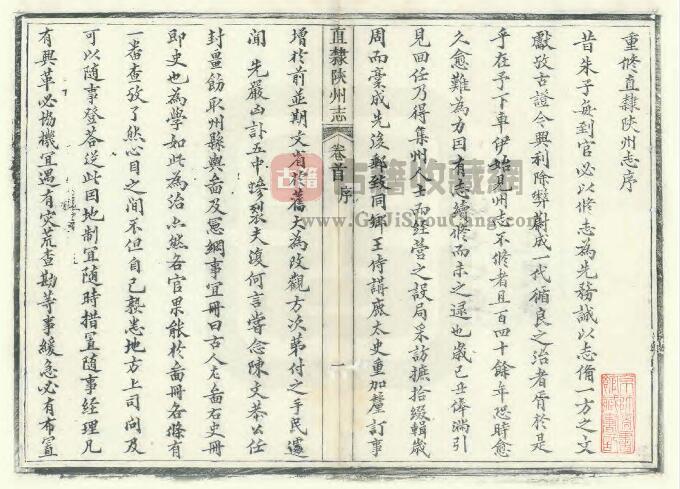 重修直隸陝州志序
昔朱子每到官必以修志為先務誠以志備一方之文
獻攷古證今興利除弊蔚成一代循良之治者胥於是
乎在予下車伊始見州志不修者且百四十餘年恐時愈
久愈難為力因有志續修而未之逮也歲己丑俸滿引
見回任乃得集州人士而經營之設局采訪摭拾綴輯歲
周而稾成先後郵致同鄉王侍講庶太史重加釐訂事
增於前並期文省於舊大為改觀方次第付之手民遽
聞 先嚴凶訃五中慘裂夫復何言嘗念陳文恭公任
封畺飭取州縣輿啚及冩綱事宜冊曰古人左啚右史冊
即史也為學如此為治亦然各官果能於啚冊各條有
一畨查攷了然心目之間不但自己熟悉地方上司問及
可以隨事登荅從此因地制宜隨時措置隨事經理凡
有興革必協機宜遇有灾荒查勘等事緩急必有布置
直隸陝州志
卷首
序
一
古籍收藏网
www.GuJiShouCang.com